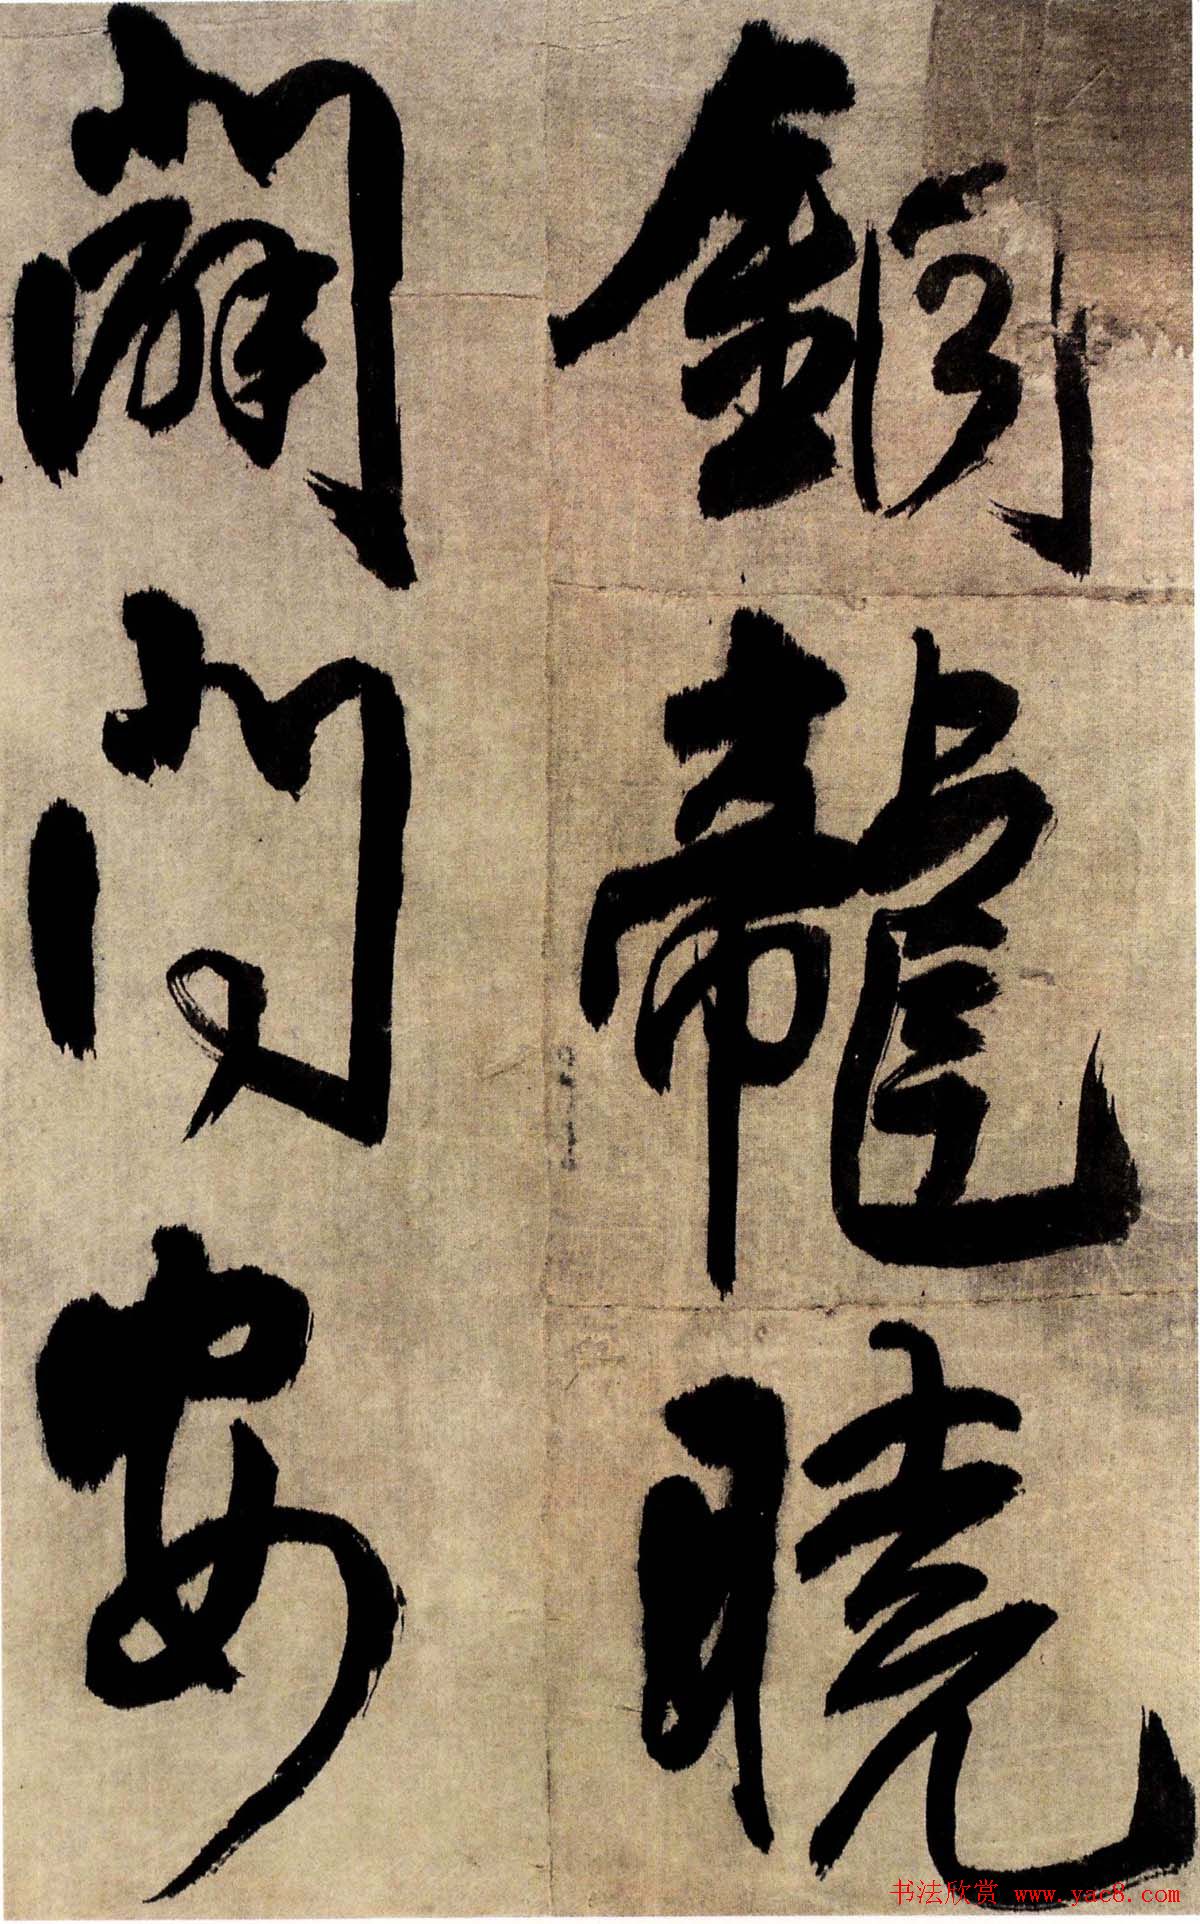 銅龍曉
闢問安
书法欣赏 www.yac8.com